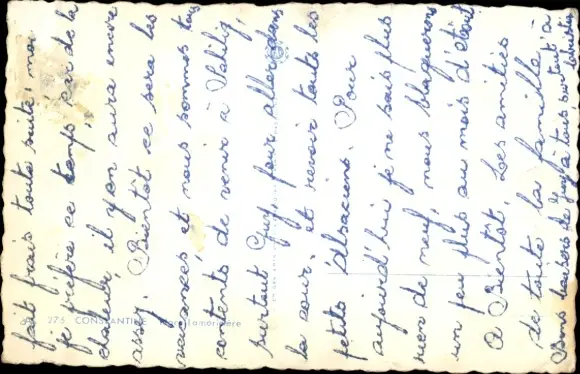 fait frais toute suite, moi
je préfère ce temps, car de la
chaleur, il y en aura encore
assez. Bientôt ce sera les
vacances, et nous sommes tous
contents de venir à
surtout Guy pour aller dans
la cour, et revoir tous les
petits alsaciens. Pour
aujourd'hui je ne sais plus
rien de neuf, nous blaguerons
un peu plus au mois d'août
A Bientôt, Les amitiés
de toute la famille
Bons baisers de Guy à tous, surtout à
275 CONSTANTINE Lamoricière